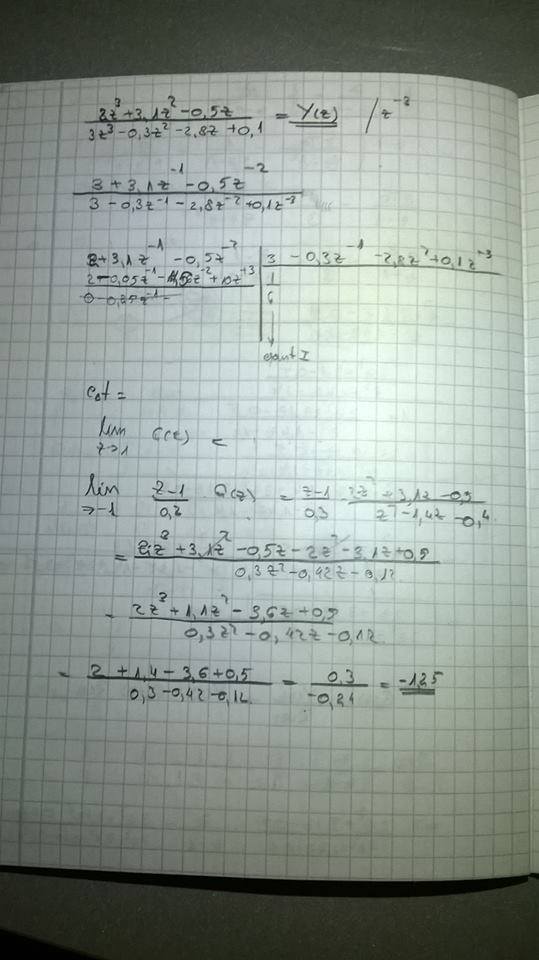 2z³+3,1z²-0,5z / 3z³-0,3z²-2,8z+0,1 = Y(z) /z⁻³
3+3,1z⁻¹-0,5z⁻² / 3-0,3z⁻¹-2,8z⁻²+0,1z⁻³
2+3,1z⁻¹-0,5z⁻² | 3-0,3z⁻¹-2,8z⁻²+0,1z⁻³
1
6
lim z→1 G(z) =
lim →1 z-1 / 0,3 G(z) = z-1 / 0,3 2z²+3,1z-0,5 / z²-1,4z-0,4
= 2z³+3,1z²-0,5z-2z²-3,1z+0,5 / 0,3z²-0,42z-0,12
= 2z³+1,1z²-3,6z+0,5 / 0,3z²-0,42z-0,12
= 2+1,4-3,6+0,5 / 0,3-0,42-0,12 = 0,3 / -0,24 = -1,25